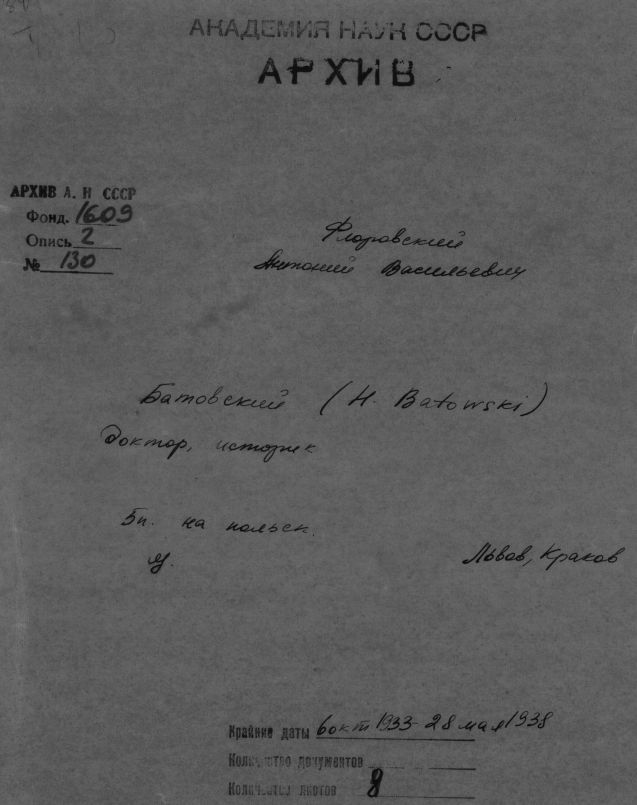 АКАДЕМИЯ НАУК СССР
АРХИВ
АРХИВ А. Н СССР
Фонд. 1609
Опись 2
№ 130
Флоровский
Антоний Васильевич
Батовский (H. Batowski)
Доктор, историк
5п. на польск.
я.
Львов, Краков
Крайние даты 6 окт 1933 - 28 мая 1938
Количество документов
Количество листов 8